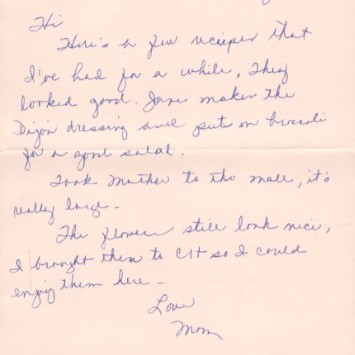 Hi
Here's a few recipes that
I've had for a while, They
looked good. Jane makes the
Dijon dressing and puts on brocoli
for a good salad.
Took Mother to the male, it's
really large -
The flowers still look nice,
I brought them to CH so I could
enjoy them here -
Love
Mom